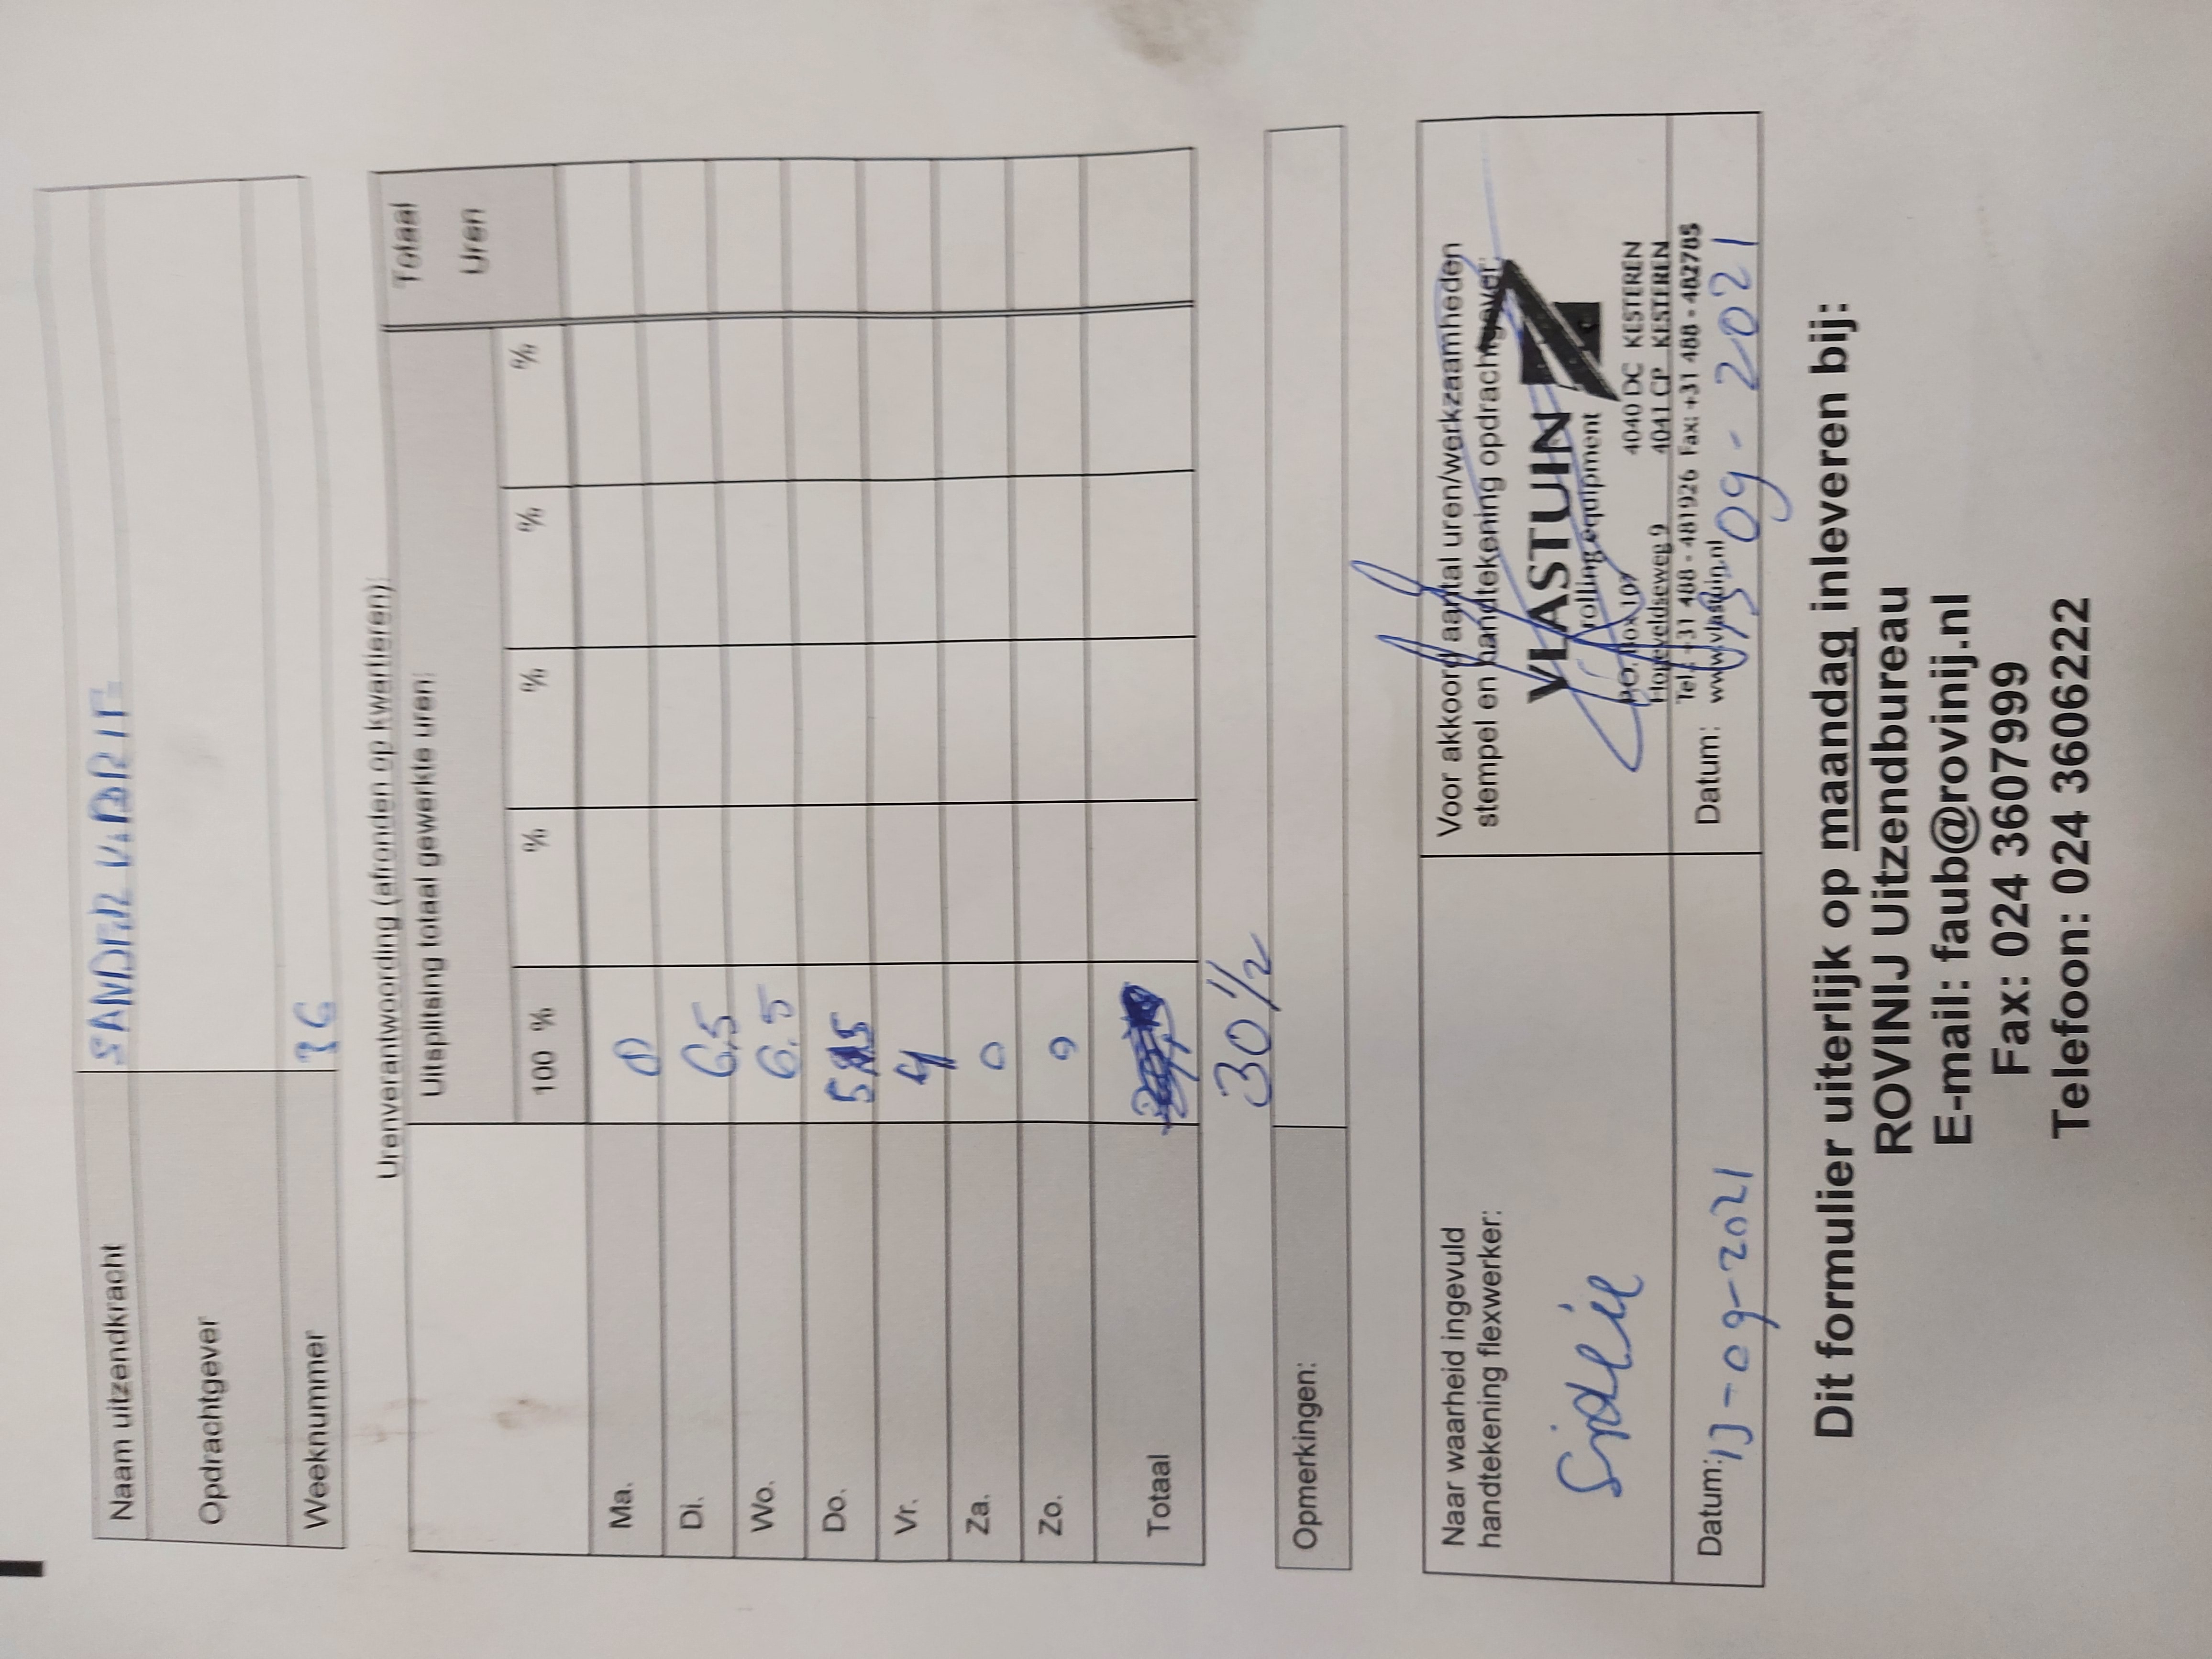 Naam uitzendkracht SANDER V.DRIE
Opdrachtgever
Weeknummer 36
Urenverantwoording (afronden op kwartieren):
Uitsplitsing totaal gewerkte uren: Totaal
Uren
100 % % % % %
Ma. 8
Di. 6,5
Wo. 6,5
Do. 5,5
Vr. 4
Za. 0
Zo. 0
Totaal
30 1/2
Opmerkingen:
Naar waarheid ingevuld
handtekening flexwerker:
Voor akkoord aantal uren/werkzaamheden
stempel en handtekening opdrachtgever:
VLASTUIN
rolling equipment
P.O. Box 107 4040 DC KESTEREN
Hogeveldseweg 9 4041 CP KESTEREN
Tel.: +31 488 - 481926 Fax: +31 488 - 482785
www.vlastuin.nl
Datum: 13-09-2021
Datum: 13-09-2021
Dit formulier uiterlijk op maandag inleveren bij:
ROVINIJ Uitzendbureau
E-mail: faub@rovinij.nl
Fax: 024 3607999
Telefoon: 024 3606222